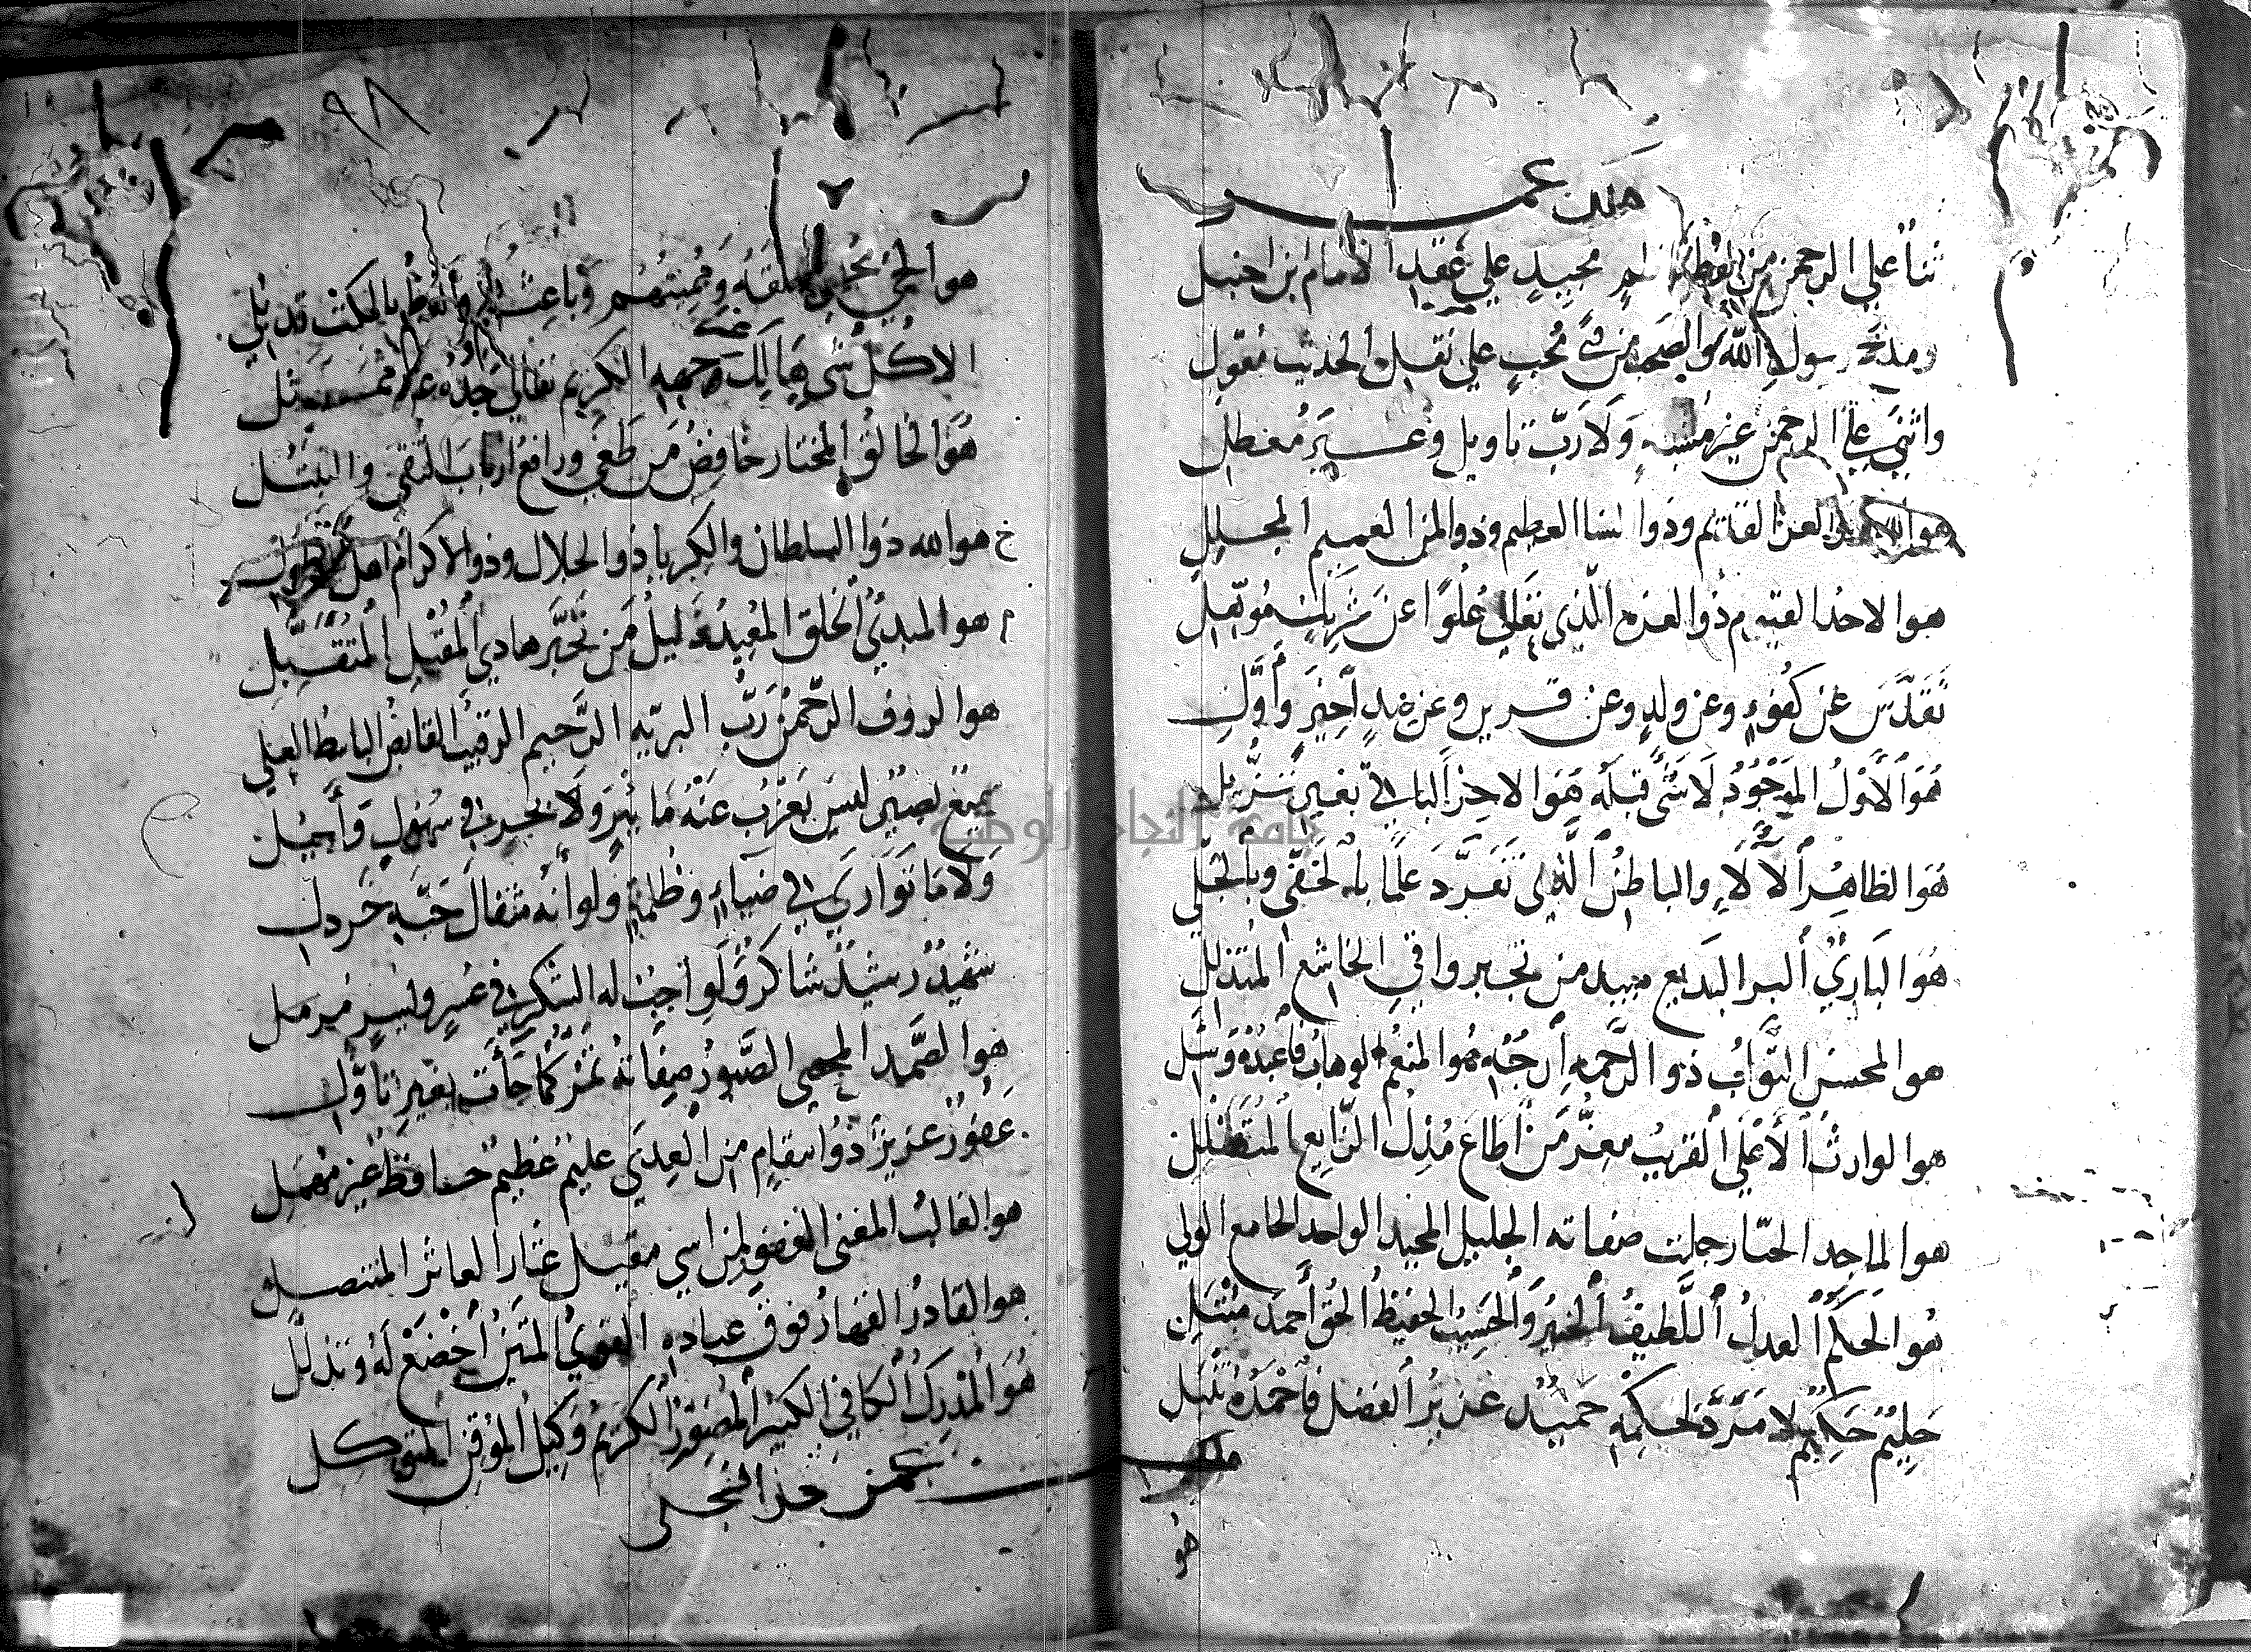 ملك عمر
ثناً علي الرحمن من محبيدٍ علي عقد الامام ابن احنبل
ومدح رسول الله والصحب من محب علي نقل الحديث معوّل
واثني علي الرحمن غير مشبهٍ وَلَا ربّ تاويل وغير معطل
هو الله ذو العز القديم وذوا لسنا العظيم وذو المن العميم المجلل
هوا الاحد القيوم ذوا لعزه الذي تعالي علوًا عن شريك موثل
تقدّس عن كفوءٍ وعن ولدٍ وعن قرين وعن بدءٍ اخير وأوّلِ
هُوَ الاوّلُ الموجُودُ لَا شَى قبلَه هَوَا لاخر الباقي بغير تنزّيل
هُوَا لظاهِرُ ألآلآءِ والباطنُ الذي تفرّد علما بالخفّي وبالجّلي
هُوَا لبَاريُ ألبر البَديع مبيد من تجبر واقي الخاشع المتذلل
هوا لمحسن التوّابُ ذو الرحمهِ أرجُه هُوا لمنعم الوهابُ فأعبدهُ وَسَل
هوا لوارثُ ألأعْلَي القريبُ معزّ مَن أطاعَ مُذِلّ الزّايع المتضلل
هوا لماجد الجبّار جلت صفاته الجليل المجيد الواحد الجامع الولي
هُوا لحَكَمُ العدلُ اللَّطيفُ الخبير وَالحَسيبُ الحفيظُ الحق أحمد مبتلِ
حَليُم حَكيُم لا مَرَدّ لحكمِه حَميُد عَزيزُ الفضل فاحمَدهُ
ملك
هُو
٩٨
هوا لحي محي خلقهُ وَمُميتُهُم وبَاعِثُ بالحكمه قد بلي
الا كل شَي هالك وجهه الكريم تعالي جَدّه عن ممثل
هَوَا لخالقُ المختار خافِضُ مَن طَغي ورافعُ اربَابَ التقي والتبتل
خ هوا لله ذوا السلطان والكبريا ذوا لجلال وذوا لاكرام اهل
م هوا لمبديُ الخلق المُعيدُ دليلُ مَن تحَيّر هادي المُقبلِ المُتقبّل
هوا لروف الرّحمنُ رَبّ البريّه الرّحيم الرقيبُ القابضُ الباسطُ العلي
سميعٌ بصيُر ليسَ يَعزُبُ عَنهُ مَا ببَرٍّ وَلَا بحرٍ في سُهولٍ وَأجبُل
وَلَا مَا تَوارَي في ضياءٍ وظلمةٍ ولو أنه مثقالَ حَبّهِ خَردل
شهيدٌ رشيدُ شاكرُ وَلواجبُ له الشكر في عُسرٍ وليسرٍ مُرمل
هوا لصّمدُ المحصي الصّبورُ صِفَاتهُ تمرّ كما جأت بغيرِ تاوّل
غَفورٌ عزيزٌ ذوُا نتقامٍ من العِدي عليُم عَظيُم حافظٌ غير مُهمل
هوا لغالبُ المغنى الغفور لمن اسي مقيل عثار العاثر المتنصل
هوا لقادرُ القهارُ فوق عباده القويُ المتينُ أخضعْ لهُ وتذلل
هُوَا لمُدرِكُ الكافي الكبيرُ المُصَوّرُ الكريمُ وَكيلُ المُوقِن المتوكِل